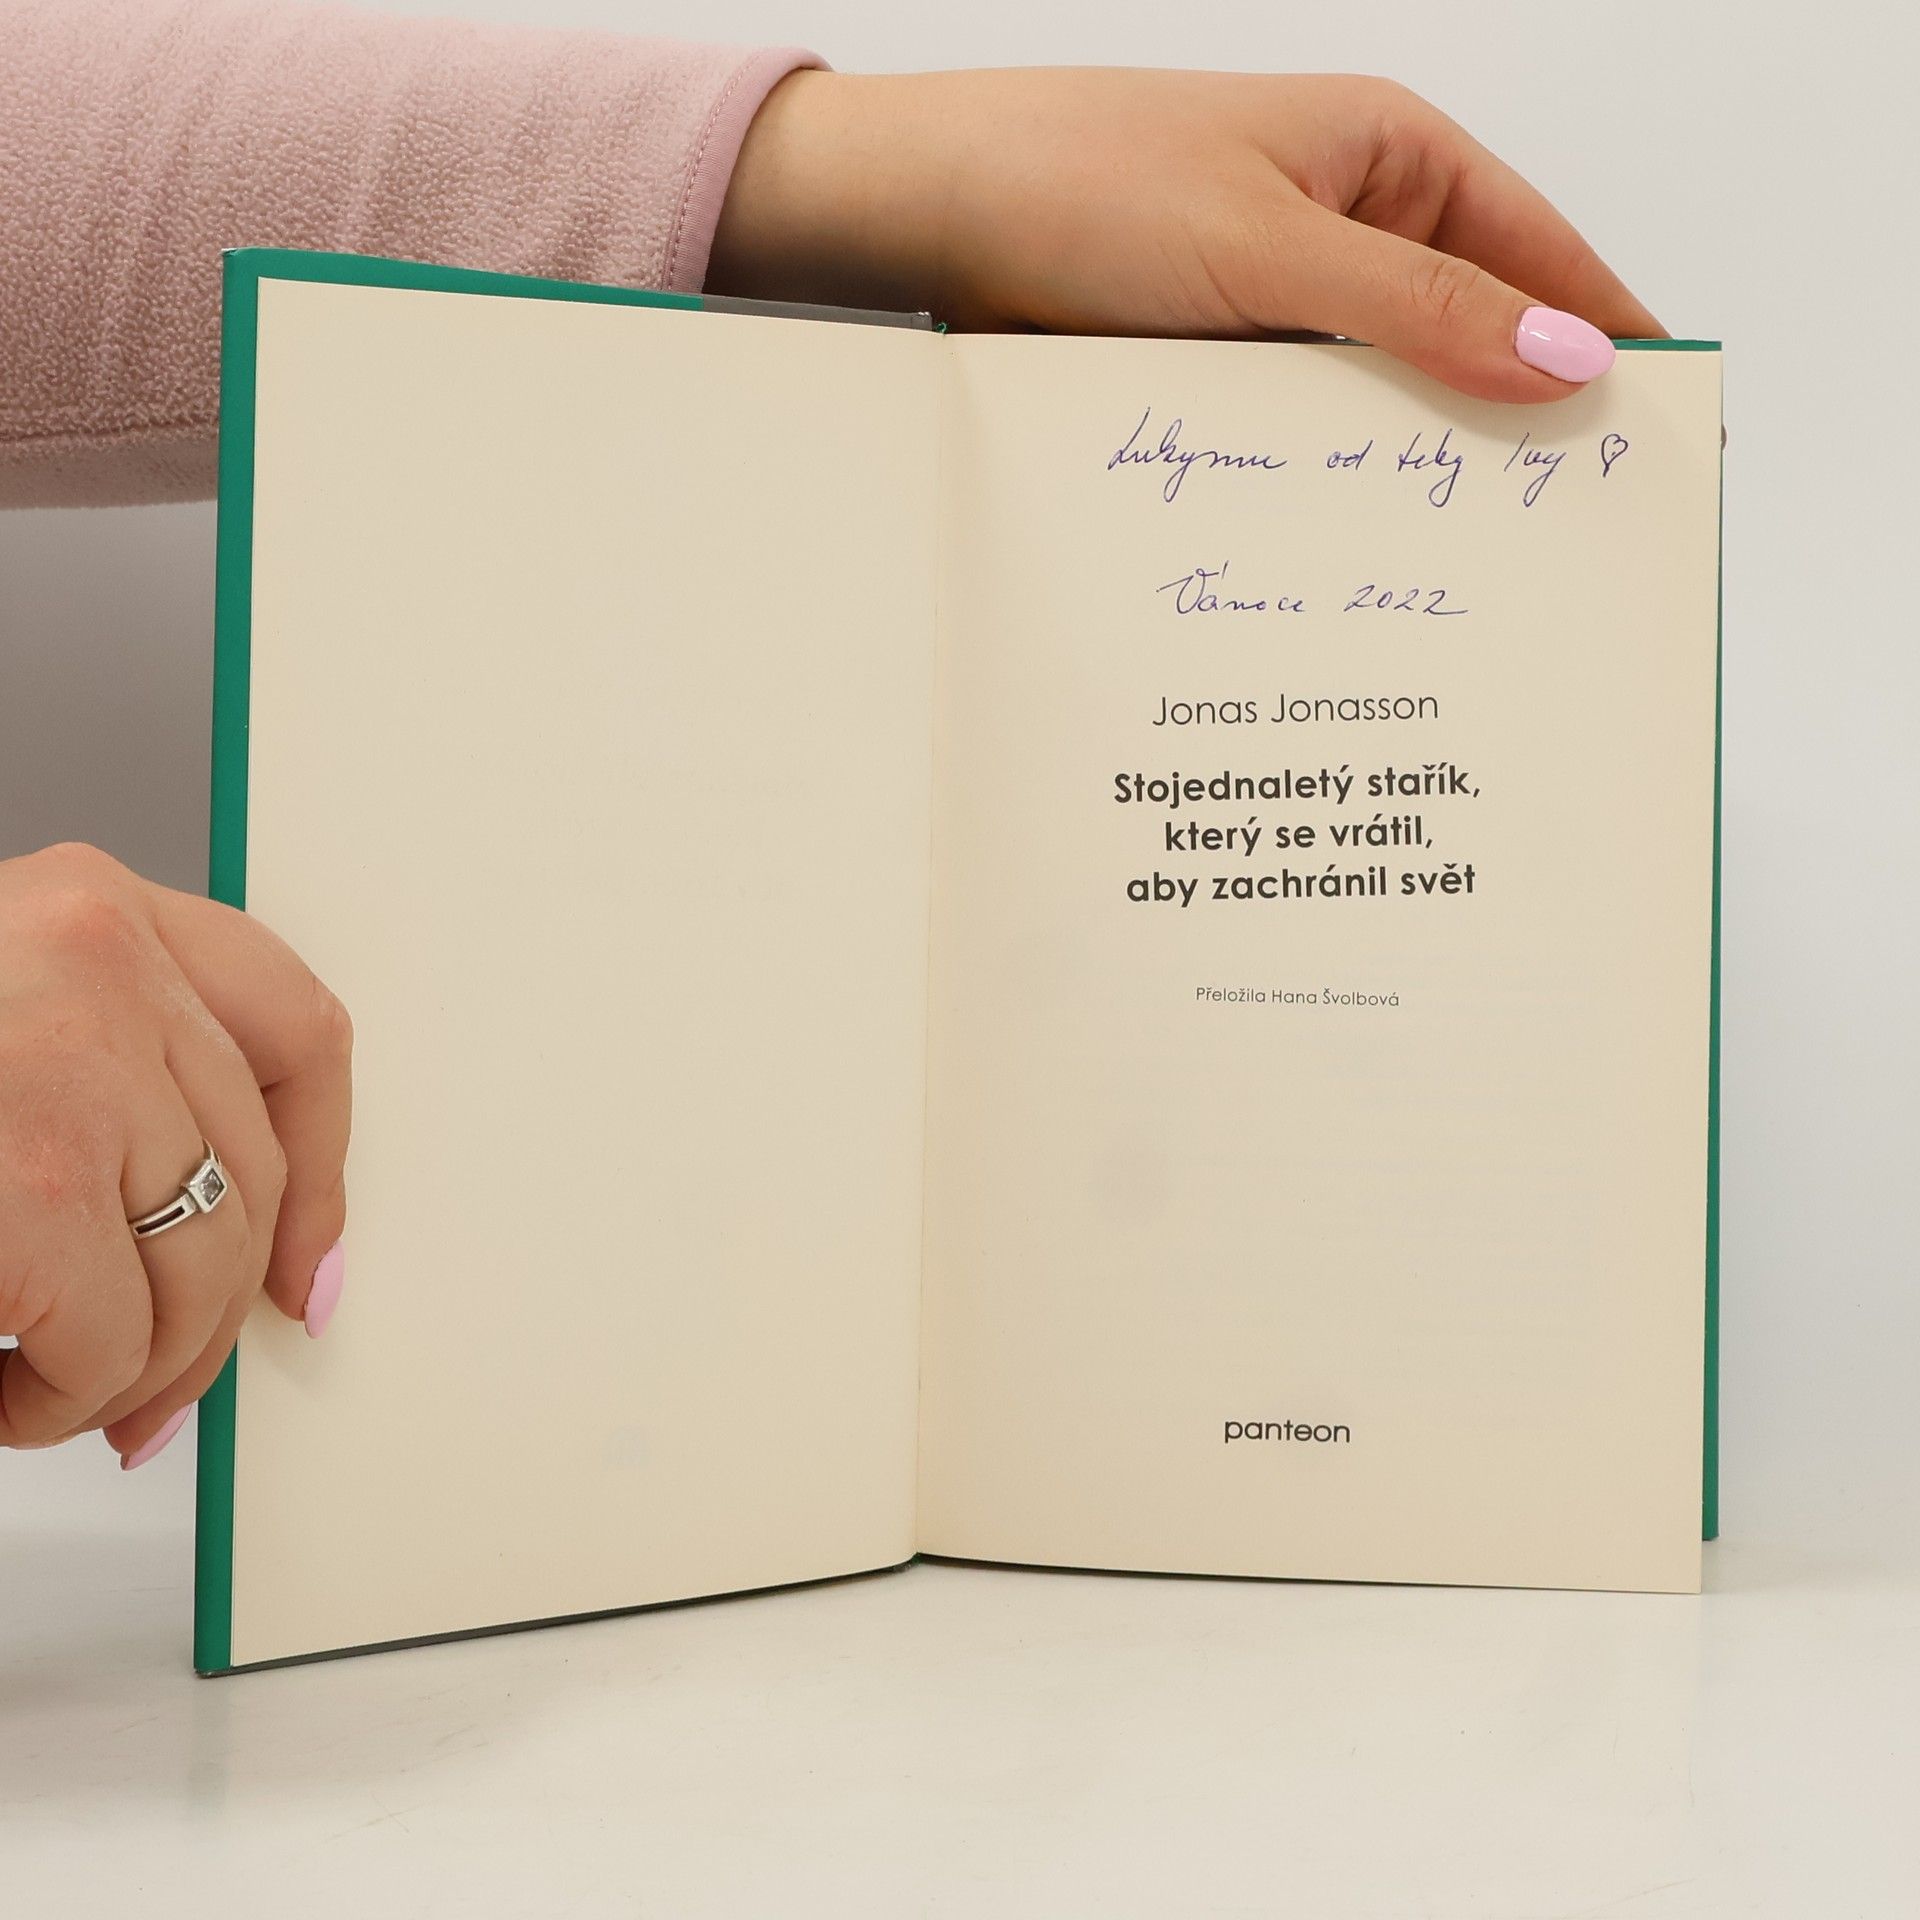 Lukymu od teky Ivy
Vánoce 2022
Jonas Jonasson
Stojednaletý stařík,
který se vrátil,
aby zachránil svět
Přeložila Hana Švolbová
panteon